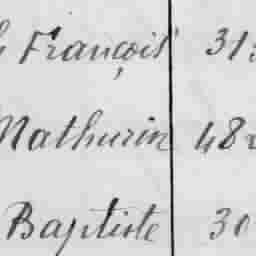 François 31
Mathurin 48
Baptiste 30